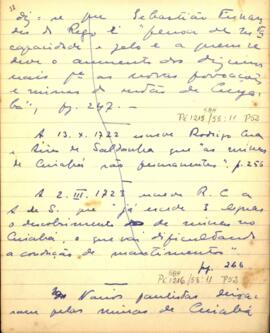 Diz-se que Sebastião Fernan
des do Rego é "pessoa de muita
capacidade e zelo e a quem se
deve o aumento dos dízimos
mais
e minas do sertão de Cuya
bá", pg. 247. —
SBH
PC 1215/58:11 P52
A 13.X.1722 escreve Rodrigo Cesar
a Aires de Saldanha que "as minas
de Cuiabá são permanentes". p. 256
A 2.III.1723 escreve R. C a
A de S. que "já excede 3 léguas
o descobrimento de minas no
Cuiabá, o que vai dificultando
a condução de mantimentos"
pg. 266
SBH
PC 1216/58:11 P52
Vários paulistas
pelas minas de Cuiabá